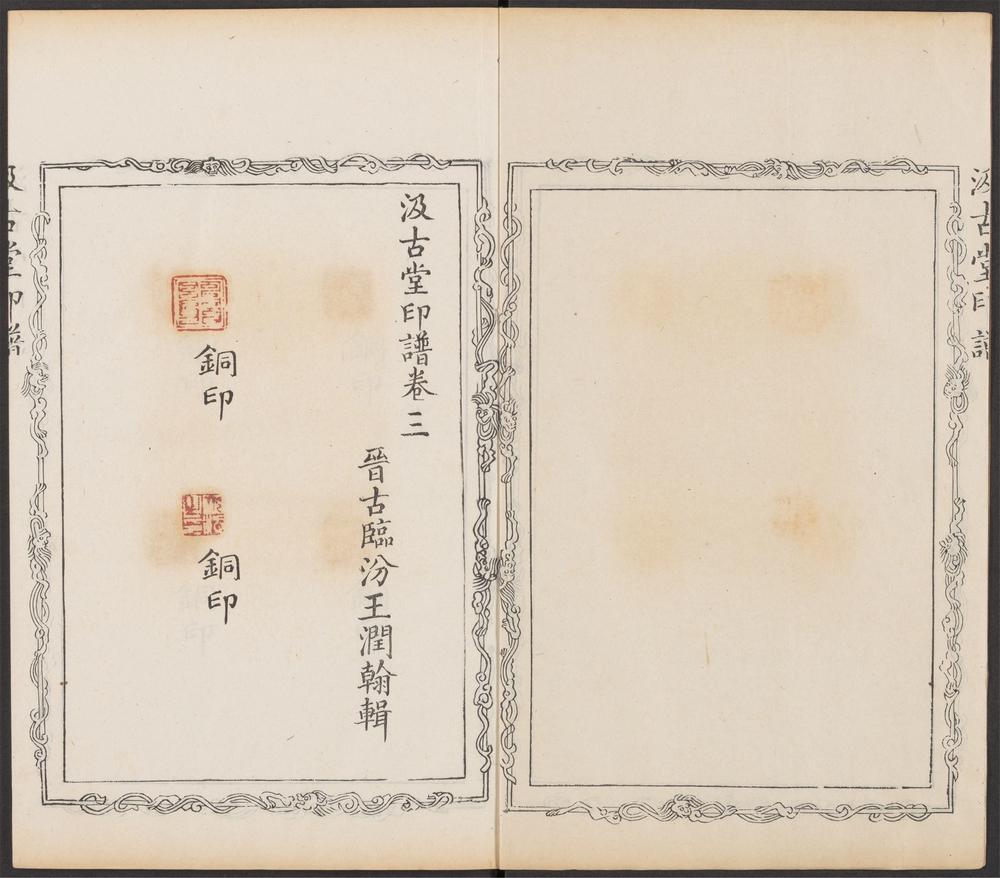 汲古堂印譜
汲古堂印譜卷三
晉古臨汾王潤翰輯
銅印
銅印
汲古堂印譜